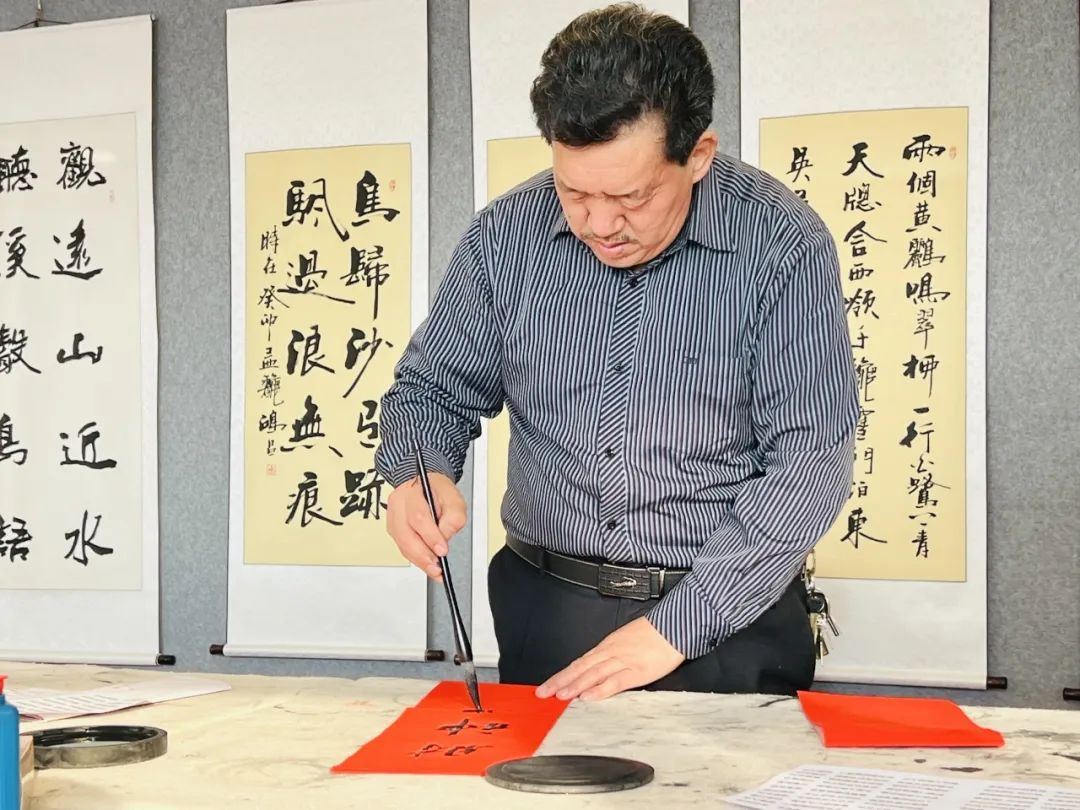 兩個黄鸝鳴翠柳一行白鷺上青
天牕含西嶺千龝雪門泊東
吳
鳥歸沙有跡
颿過浪無痕
時在癸卯孟龝鴻
觀遠山近水
聽溪聲鳥語